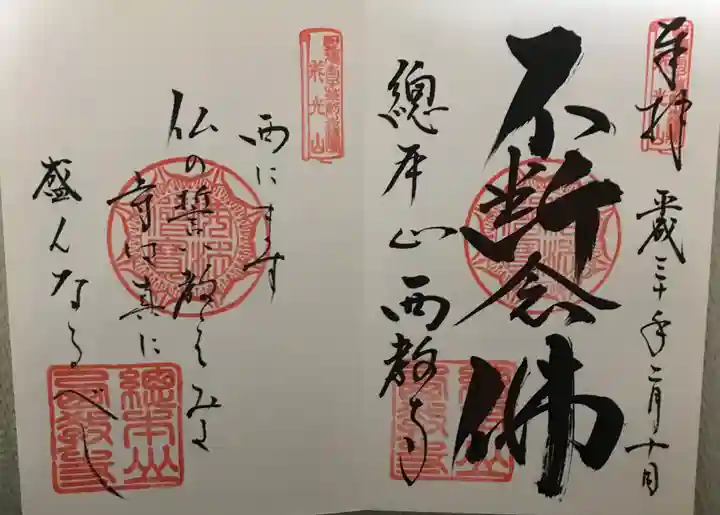 奉拝
平成三十年二月十日
不断念佛
總本山西教寺
西にます
仏の誓い教えみち
寺は真に
盛んなるべし
總本山
西教寺